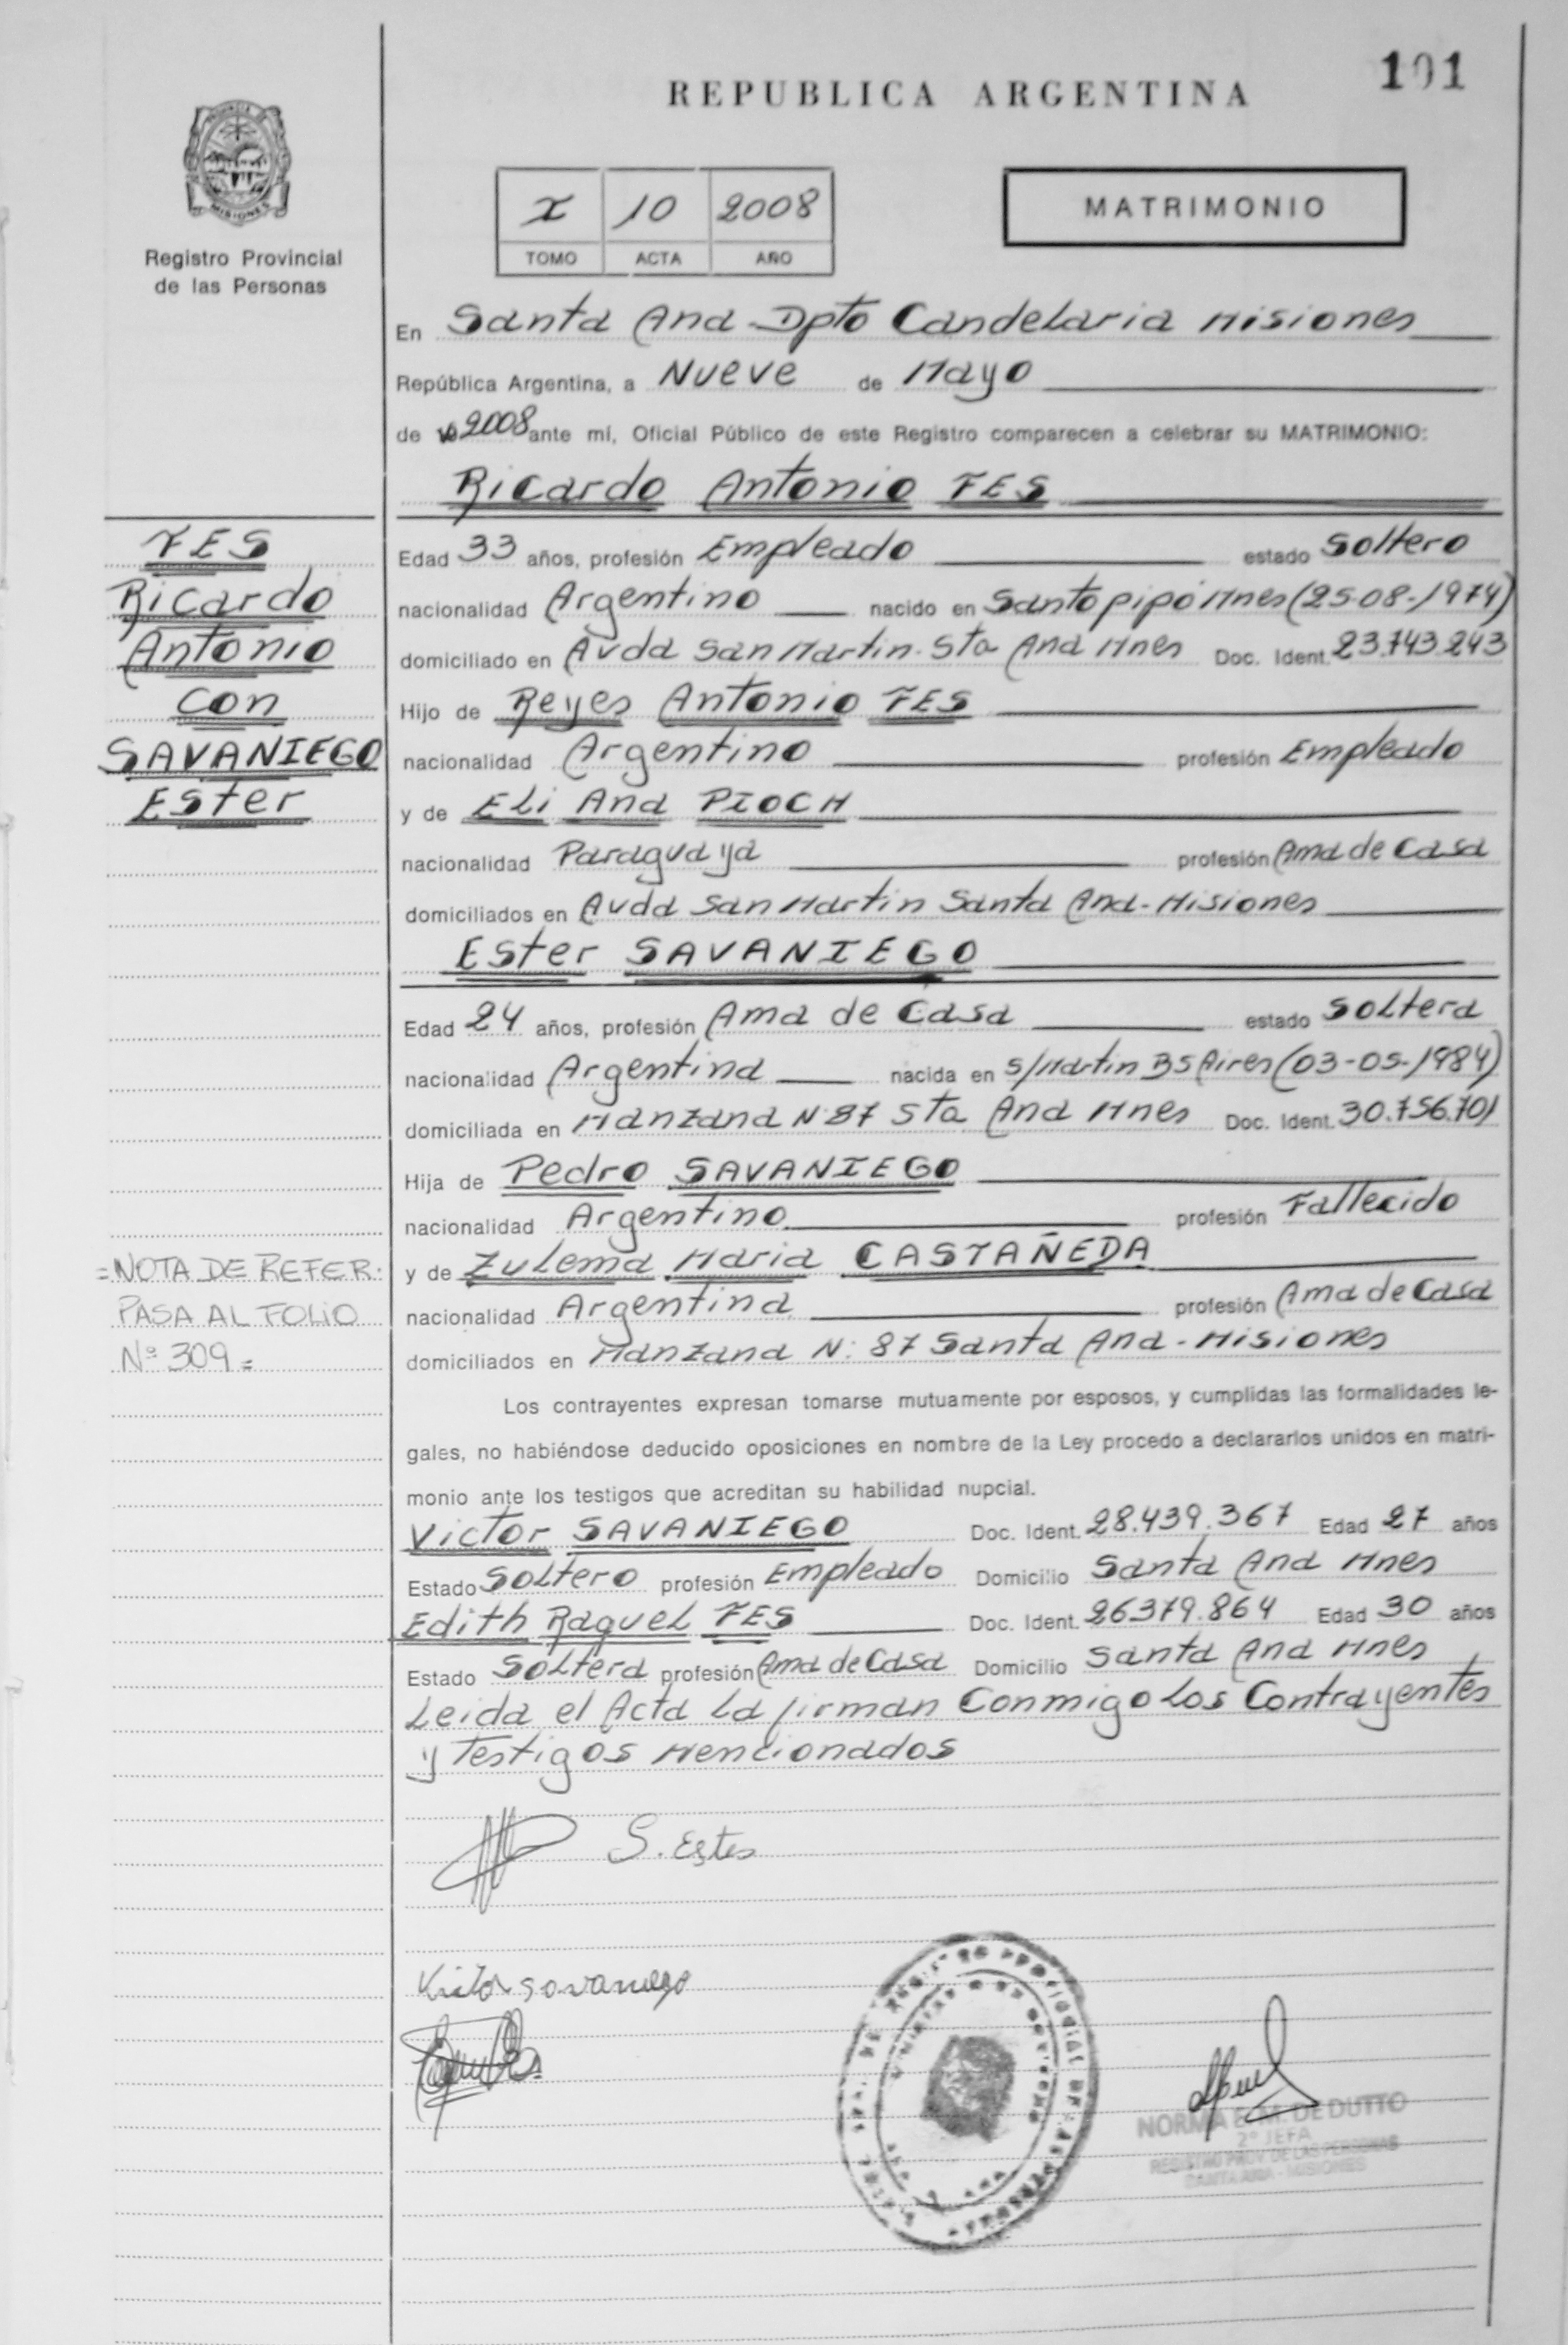 101
REPUBLICA ARGENTINA
MISIONES
Registro Provincial
de las Personas
I 10 2008
TOMO ACTA AÑO
MATRIMONIO
En Santa Ana - Dpto Candelaria Misiones
República Argentina, a Nueve de Mayo
de 2008 ante mí, Oficial Público de este Registro comparecen a celebrar su MATRIMONIO:
Ricardo Antonio FES
FES
Ricardo
Antonio
con
SAVANIEGO
Ester
Edad 33 años, profesión Empleado estado Soltero
nacionalidad Argentino nacido en Santo pipó Mnes (25-08-1974)
domiciliado en Avda San Martin. Sta Ana Mnes Doc. Ident. 23.743.243
Hijo de Reyes Antonio FES
nacionalidad Argentino profesión Empleado
y de Eli Ana PIOCH
nacionalidad Paraguaya profesión Ama de Casa
domiciliados en Avda San Martin Santa Ana - Misiones
Ester SAVANIEGO
Edad 24 años, profesión Ama de Casa estado Soltera
nacionalidad Argentina nacida en S/Martin Bs Aires (03-05-1984)
domiciliada en Manzana N 87 Sta Ana Mnes Doc. Ident. 30.756.701
Hija de Pedro SAVANIEGO
nacionalidad Argentino profesión Fallecido
y de Zulema Maria CASTAÑEDA
nacionalidad Argentina profesión Ama de Casa
domiciliados en Manzana N: 87 Santa Ana - Misiones
= NOTA DE REFER.
PASA AL FOLIO
Nº 309 =
Los contrayentes expresan tomarse mutuamente por esposos, y cumplidas las formalidades le-
gales, no habiéndose deducido oposiciones en nombre de la Ley procedo a declararlos unidos en matri-
monio ante los testigos que acreditan su habilidad nupcial.
Victor SAVANIEGO Doc. Ident. 28.439.367 Edad 27 años
Estado Soltero profesión Empleado Domicilio Santa Ana Mnes
Edith Raquel FES Doc. Ident. 26379.864 Edad 30 años
Estado Soltera profesión Ama de Casa Domicilio Santa Ana Mnes
Leida el Acta la firman Conmigo los Contrayentes
y Testigos Mencionados
S. Ester
Victor Savaniego
NORMA E. M. DE DUTTO
2º JEFA
REGISTRO PROV. DE LAS PERSONAS
SANTA ANA - MISIONES